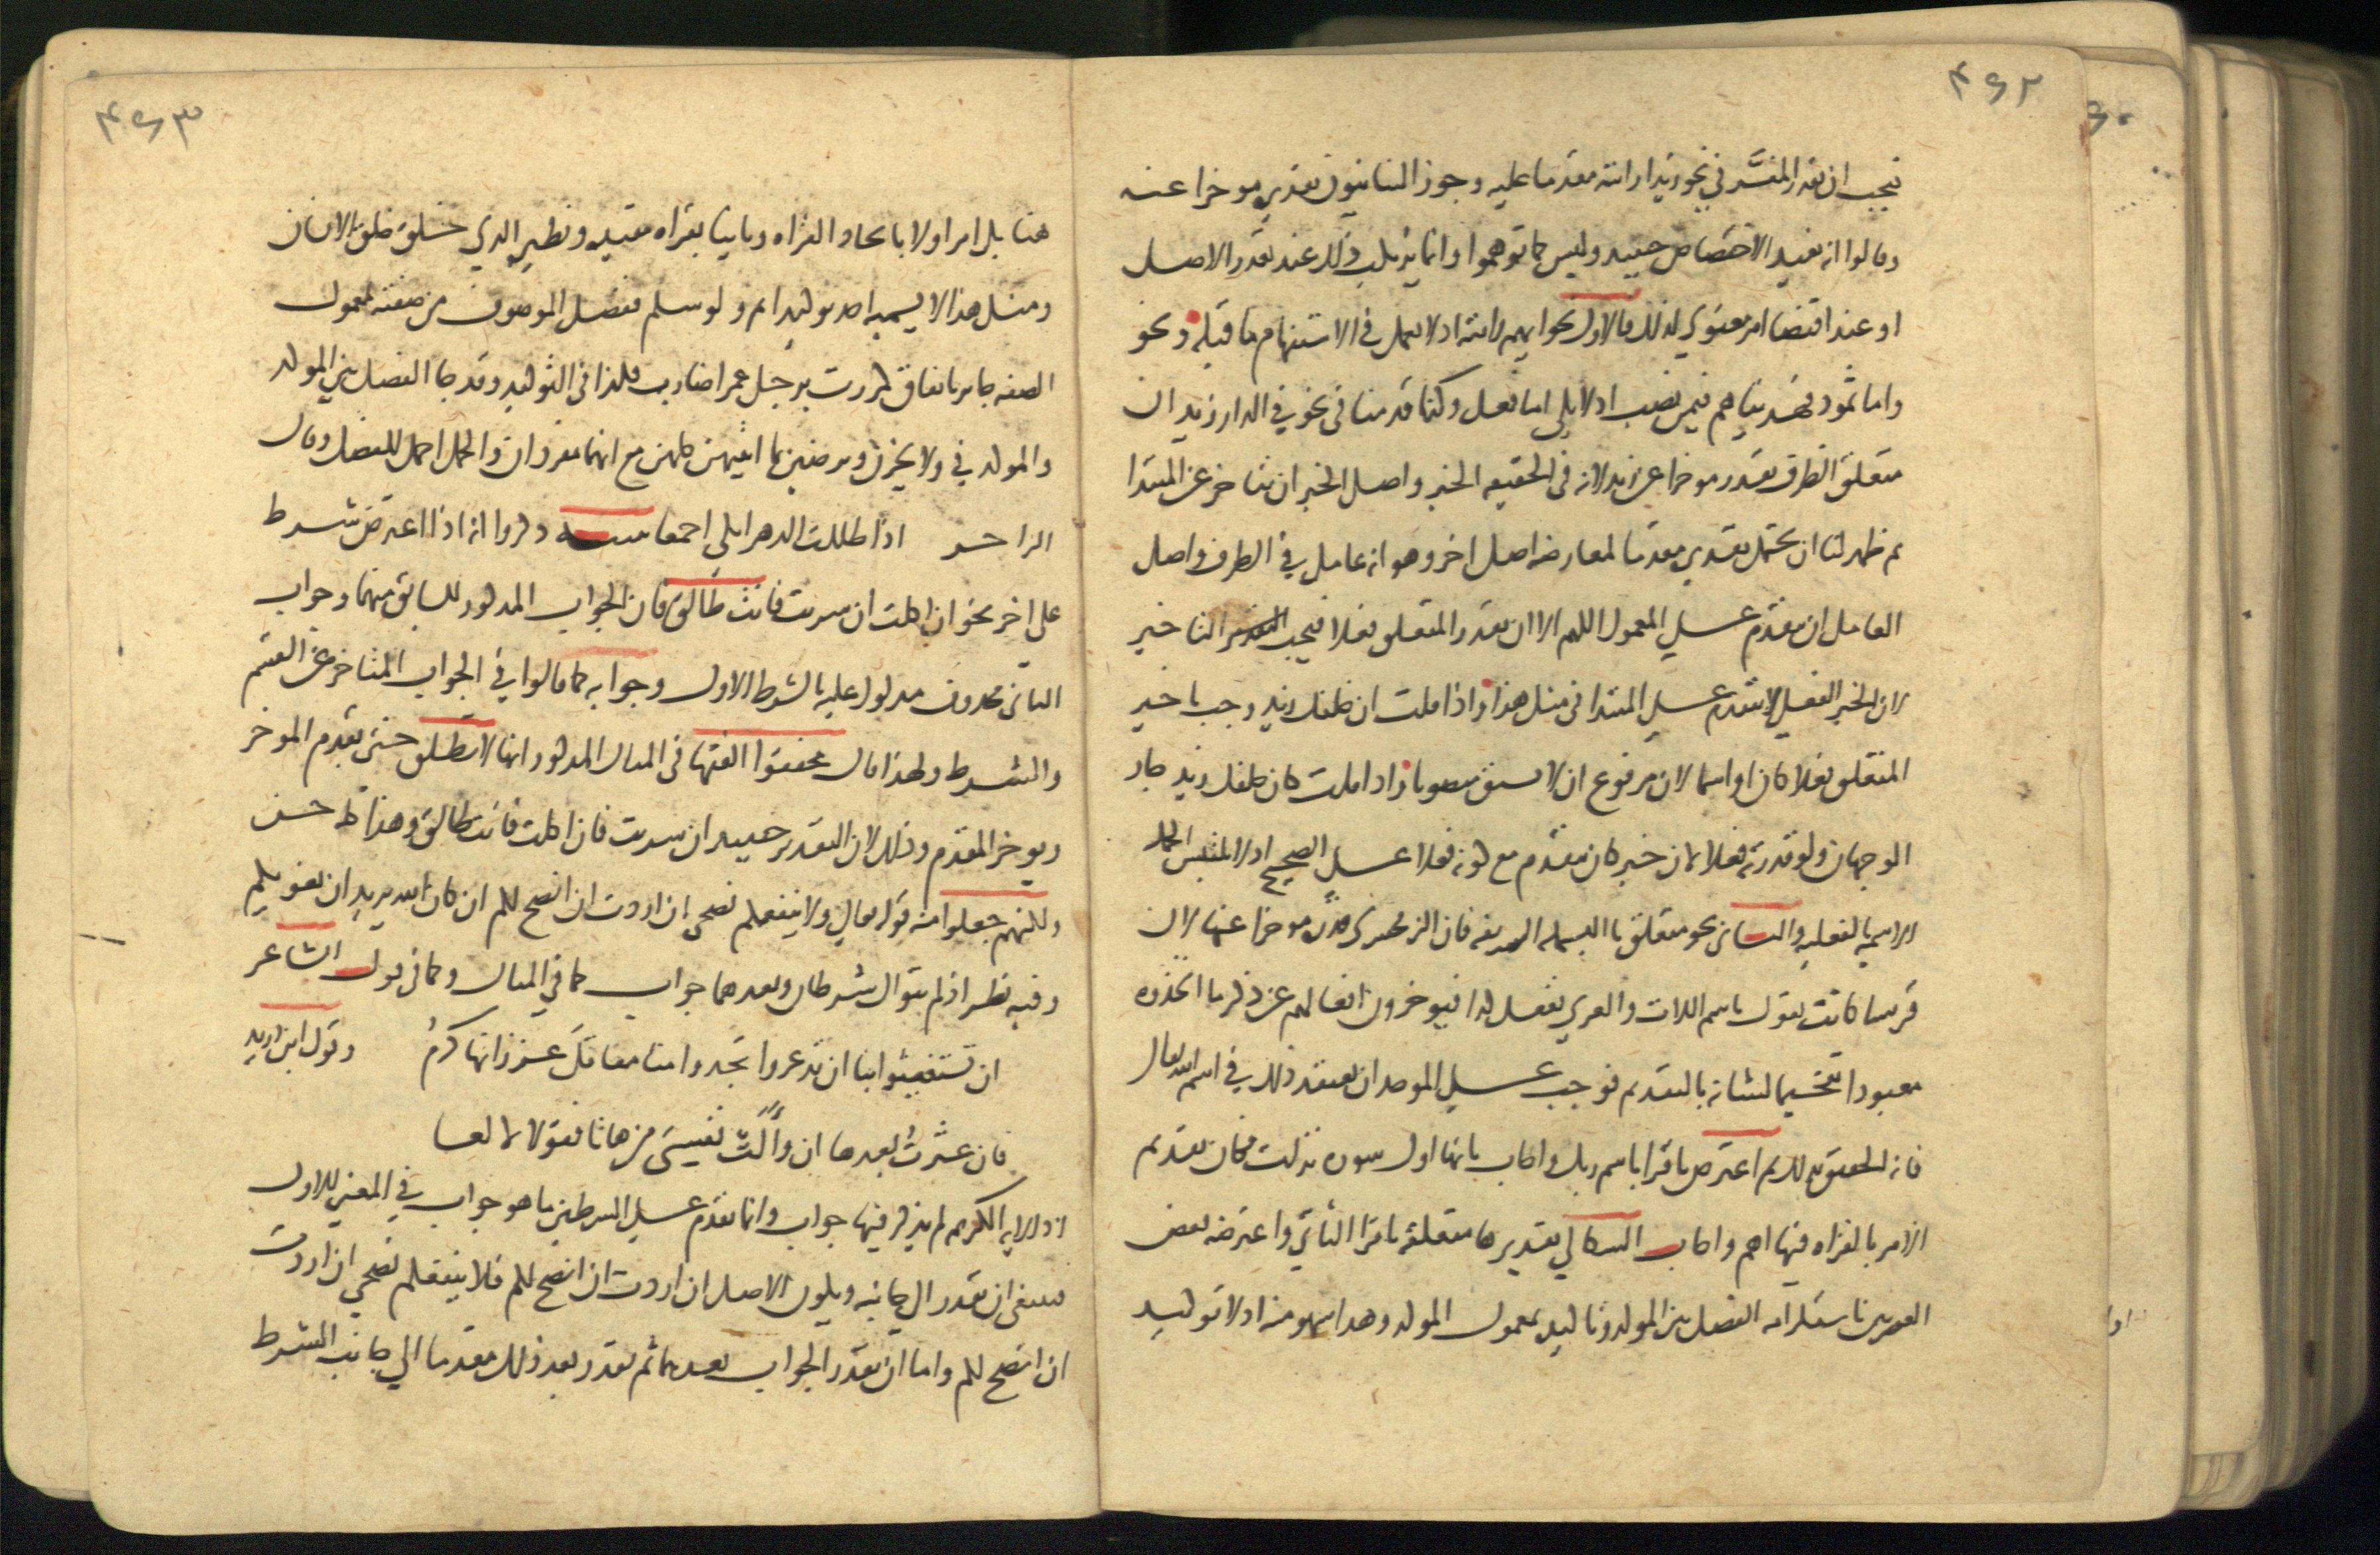 ٤٦٢
فيجب ان يقدر المفسَّر في نحو زيدا رايته مقدما عليه وجوز البيانيون تقديره موخرا عنه
وقالوا انه يفيد الاختصاص حينيد وليس كما توهموا وانما يرتكب ذلك عند تعذر الاصل
او عند اقتضا امر معنوي لذلك فالاول نحو ايهم رايته اد لا يعمل في الاستفهام ما قبله ونحو
واما ثمود فهديناهم فيمن نصب اد لا يلي اما فعل وكنا قدمنا في نحو في الدار زيد ان
متعلق الظرف يقدر موخرا عن زيد لانه في الحقيقه الخبر واصل الخبر ان يتاخر عن المبتدا
ثم ظهر لنا ان يحتمل تقديره مقدما لمعارضه اصل اخر وهو انه عامل في الظرف واصل
العامل ان يتقدم علي المعمول اللهم الا ان يقدر المتعلق فعلا فيجب التاخير
لان الخبر الفعلي لا يتقدم علي المبتدا في مثل هذا واذا قلت ان خلفك زيد وجب تاخير
المتعلق فعلا كان او اسما لان مرفوع ان لا يسبق منصوبها واذا قلت كان خلفك زيد جاز
الوجهان ولو قدرته فعلا لان خبر كان يتقدم مع كونه فعلا علي الصحيح اد لا تلتبس الجمله
الاسميه بالفعليه والثاني نحو متعلق باالبسمله الشريفه فان الزمخشري قدره موخرا عنها لان
قريشا كانت تقول باسم اللات والعزي نفعل كذا فيوخرون افعالهم عن ذكر ما اتخذوه
معبودا تفخيما لشانه بالتقديم فوجب علي الموحد ان يعتقد ذلك في اسم الله تعالى
فانه الحقيق بذلك ثم اعترض باقرا باسم ربك واجاب بانها اول سوره نزلت فكان تقديم
الامر بالقراه فيها اهم واجاب السكاكي بتقديرها متعلقة باقرا الثاني واعترضه بعض
العصريين باستلزامه الفصل بين المولد وتاكيده بمعمول المولد وهدا سهو منه اد لا توليد
٤٦٣
هنا بل امر اولا بايجاد القراه وثانيا بقراه مقيده ونظيره الدي خلق خلق الانسان
ومثل هذا لا يسميه احد توكيدا ثم ولو سلم ففصل الموصوف من صفته بمعمول
الصفه جايز باتفاق كمررت برجل عمرا ضارب فلذا في التوليد وقد جا الفصل بين المولد
والمولد في ولا يحزن ويرضين بما اتيتهن كلهن مع انهما مفردان والجمل احمل للفصل وقال
الراجز اذا ظللت الدهر ابلي اجمعا تنبيه ذكروا انه اذا اعترض شرط
على اخر نحو ان اكلت ان شربت فانت طالق فان الجواب المدكور للسابق منهما وجواب
الثاني محدوف مدلول عليه بالشرط الاول وجوابه كما قالوا في الجواب المتاخر عن القسم
والشرط ولهذا قال محققوا الفقها في المثال المدكور انها لا تطلق حتى يقدم الموخر
ويوخر المقدم وذلك لان التقدير حينيد ان شربت فان اكلت فانت طالق وهذا كله حسن
ولكنهم جعلوا منه قوله تعالي ولا ينفعكم نصحي ان اردت ان انصح لكم ان كان الله يريد ان يغويكم
وفيه نظر اذ لم يتوال شرطان وبعدهما جواب كما في المثال وكما في قول الشاعر
ان تستغيثوا بنا ان تذعروا تجدوا منا معاقل عز زانها كرمُ وقول ابن دريد
فان عثرت بعدها ان وألت نفسي من هاتا فقولا لا لعا
اد الايه الكريمه لم يذكر فيها جواب وانما تقدم علي الشرطين ما هو جواب في المعنى للاول
فينبغي ان يقدر الي جانبه ويكون الاصل ان اردت ان انصح لكم فلا ينفعكم نصحي ان اردت
ان انصح لكم واما ان يقدر الجواب بعدهما ثم يقدر بعد ذلك مقدما الي جانب الشرط